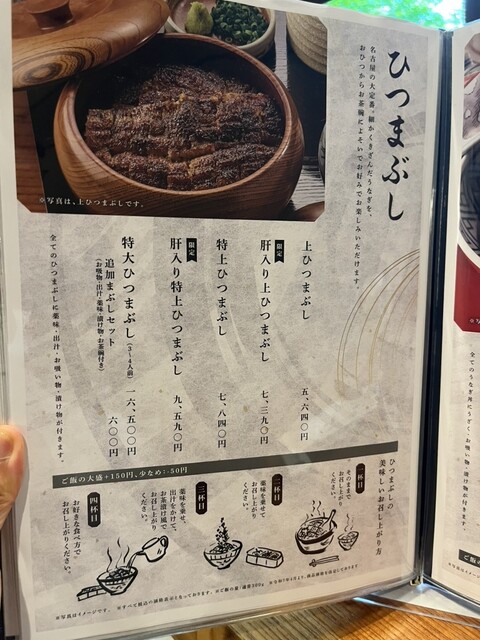 ひつまぶし
名古屋の大定番。細かくきざんだうなぎを、
おひつからお茶碗によそいでお好みでお楽しみいただけます。
※写真は、上ひつまぶしです。
上ひつまぶし 五、六四〇円
限定
肝入り上ひつまぶし 七、三九〇円
特上ひつまぶし 七、八四〇円
限定
肝入り特上ひつまぶし 九、五九〇円
特大ひつまぶし(3〜4人前) 一六、五〇〇円
追加まぶしセット 六〇〇円
(お吸物・出汁・薬味・漬け物・お茶碗付き)
全てのひつまぶしに薬味・出汁・お吸い物・漬け物が付きます。
ご飯の大盛+150円、少なめ:-50円
ひつまぶしの
美味しいお召し上がり方
一杯目
そのままで
お召し上がり
ください。
二杯目
薬味を乗せて
お召し上がり
ください。
三杯目
薬味を乗せ、
出汁をかけて、
お茶漬け風で
お召し上がり
ください。
四杯目
お好きな食べ方で
お召し上がりください。
※写真はイメージです。 ※すべて税込の価格表示となっております。
全てのうなぎ丼にうざく、お吸い物、漬け物が付きます。